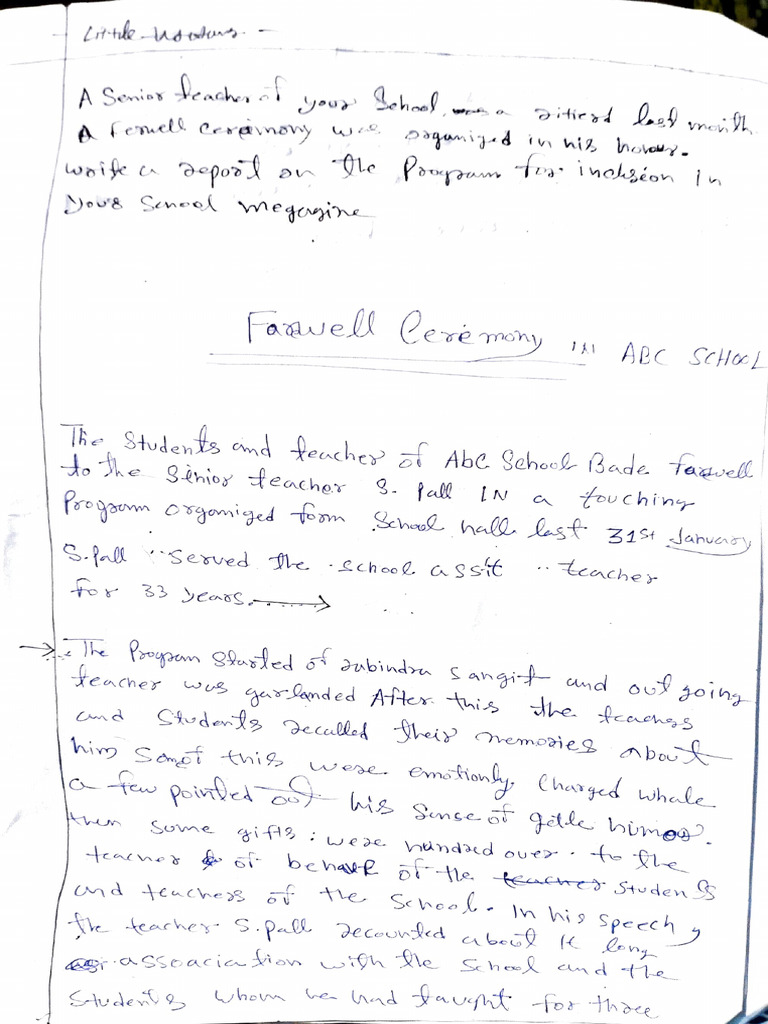 Little
A Senior teacher of your School was a ritierd last month.
A Ferwell Ceremony was organized in his honour.
write a report on the Program for inclusion in
your School megazine
Farwell Ceremony in ABC SCHOOL
The Students and teacher of AbC School Bade farwell
to the Senior teacher S. Pall IN a touching
Program organized form School hall last 31st January
S.Pall served the school assit teacher
for 33 years.
The Program Started of rabindra sangit and out going
teacher was garlanded After this the teachers
and Students recalled their memories about
him Som of this were emotionly charged whale
a few pointed out his Sense of humor.
then some gifts were hundred over to the
teacher of behalf of the teacher students
and teachers of the School. In his speech
the teacher S.pall recounted about long
association with the School and the
Students whom he had taught for three